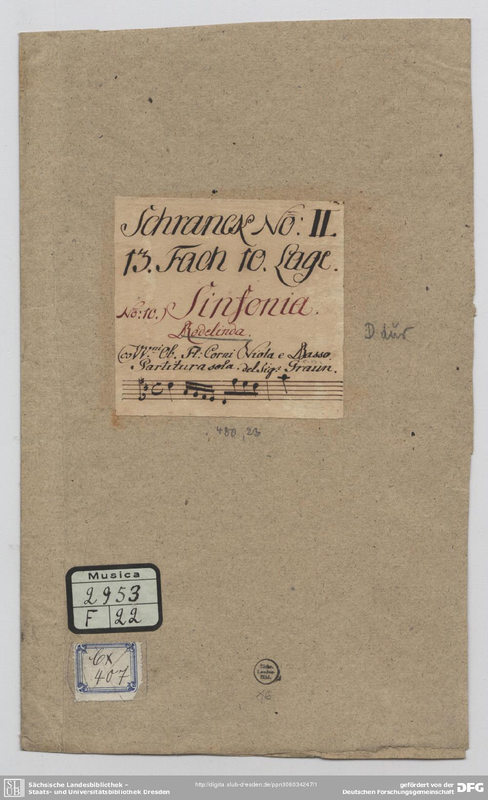 Schranck No: II.
13. Fach 10. Lage.
No: 10.) Sinfonia.
Rodelinda.
co VVni Ob. Fl. Corni Viola e Basso.
Partitura sola. del Sigr Graun.
D dur
480, 23
Musica
2953
F 22
Cx
407
Sächs.
Landes-
Bibl.
Sächsische Landesbibliothek -
Staats- und Universitätsbibliothek Dresden
http://digital.slub-dresden.de/ppn309034247/1
gefördert von der
Deutschen Forschungsgemeinschaft
DFG